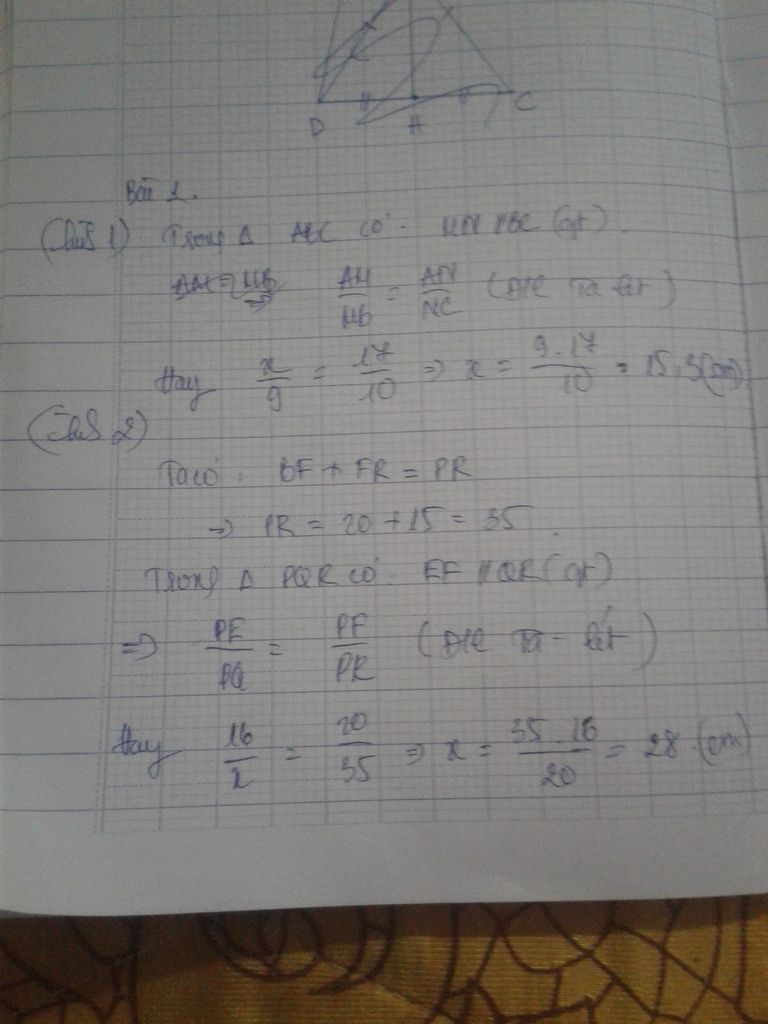 D H C
Bài 1.
(Câu 1) Trong Δ ABC có: MN // BC (gt)
AM/MB = AN/NC (ĐK Ta lét)
Hay x/9 = 17/10 ⇒ x = 9.17/10 = 15,3(cm)
(Câu 2)
Ta có: BF + FR = PR
⇒ PR = 20 + 15 = 35.
Trong Δ PQR có: EF // QR (gt)
⇒ PE/PQ = PF/PR (ĐK Ta-lét)
Hay 16/x = 20/35 ⇒ x = 35.16/20 = 28 (cm)